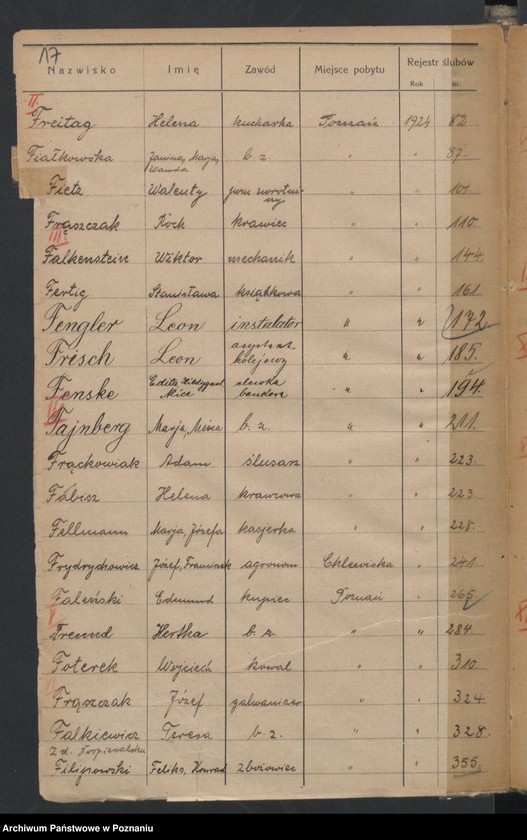 17
Nazwisko Imię Zawód Miejsce pobytu Rejestr ślubów
Rok nr.
II.
Freitag Helena kucharka Poznań 1924 82.
Fiałkowska Janina, Marja, Wanda b. z. " " 87.
Fietz Walenty pom. " " 101
Frąszczak Roch krawiec " " 110.
III.
Falkenstein Wiktor mechanik " " 144
Fertig Stanisława książkowa " " 161.
Fengler Leon instalator " " 172
Frisch Leon asystent kolejowy " " 185.
Fenske Edita, Hildegard, Alice " " 194.
Fajnberg Marja, Mina b. z. " " 211.
Frąckowiak Adam ślusarz " " 223.
Fabisz Helena krawcowa " " 223.
Fellmann Marja, Józefa kasjerka " " 228.
Frydrychowicz Józef, Franciszek agronom Chlewiska " 241.
Faleński Edmund kupiec Poznań " 265
V.
Freund Hertha b. z. " " 284
Foterek Wojciech kowal " " 310.
Frąszczak Józef galwanizer " " 324
Falkiewicz Teresa b. z. " " 328.
z d.
Filipowski Feliks, Konrad zbożowiec " " 355.
Archiwum Państwowe w Poznaniu